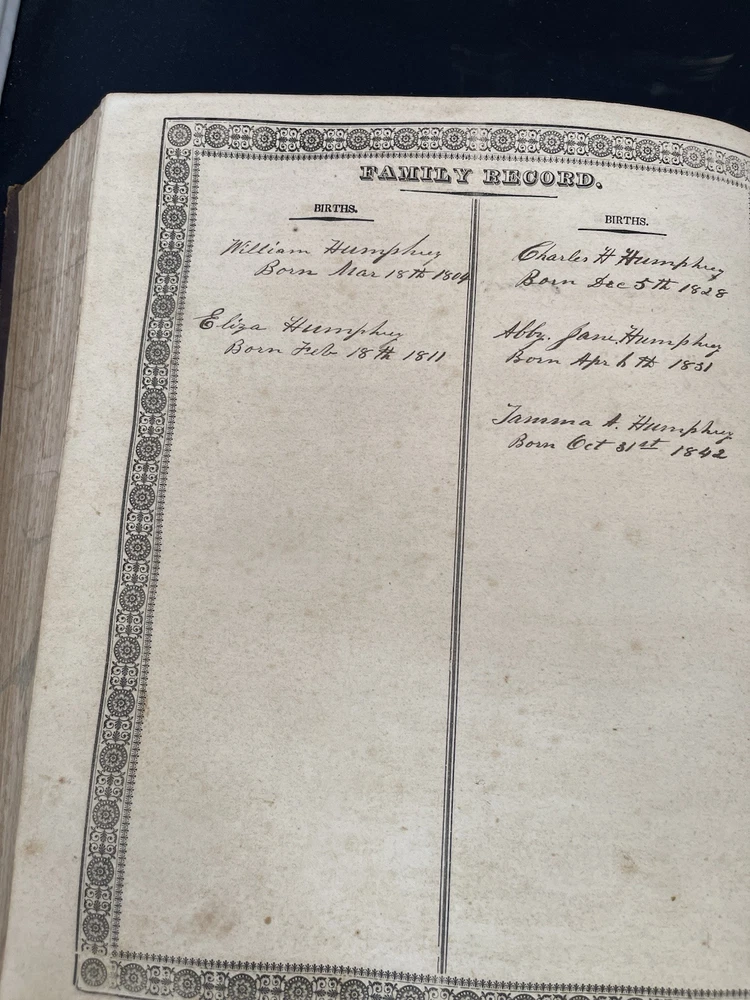 FAMILY RECORD.
BIRTHS.
William Humphrey
Born Mar 18th 1804
Eliza Humphrey
Born Feb 18th 1811
BIRTHS.
Charles H Humphrey
Born Dec 5th 1828
Abby Jane Humphrey
Born Apr 6th 1831
Tamma A. Humphrey
Born Oct 31st 1842